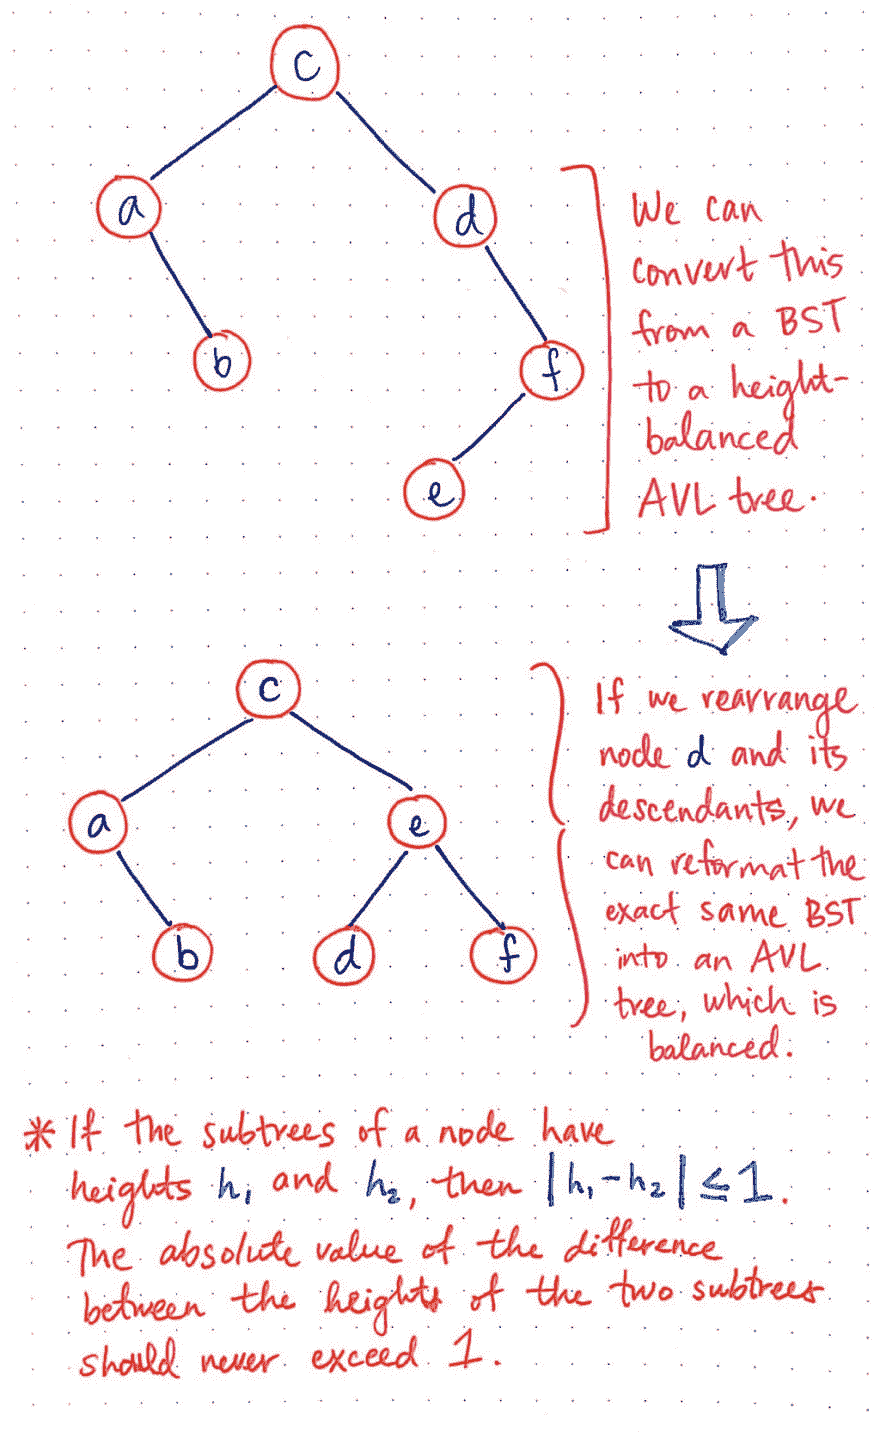 c
a
d
We can
convert this
from a BST
to a height-
balanced
AVL tree.
b
f
e
c
a
e
b
d
f
If we rearrange
node d and its
descendants, we
can reformat the
exact same BST
into an AVL
tree, which is
balanced.
* If the subtrees of a node have
heights h₁ and h₂, then |h₁-h₂| ≤ 1.
The absolute value of the difference
between the heights of the two subtrees
should never exceed 1.